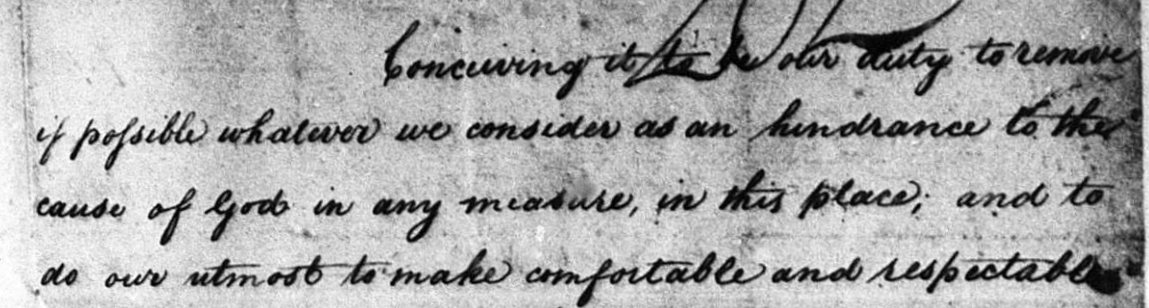 Conceiving it to be our duty to remove
if possible whatever we consider as an hindrance to the
cause of God in any measure, in this place; and to
do our utmost to make comfortable and respectable